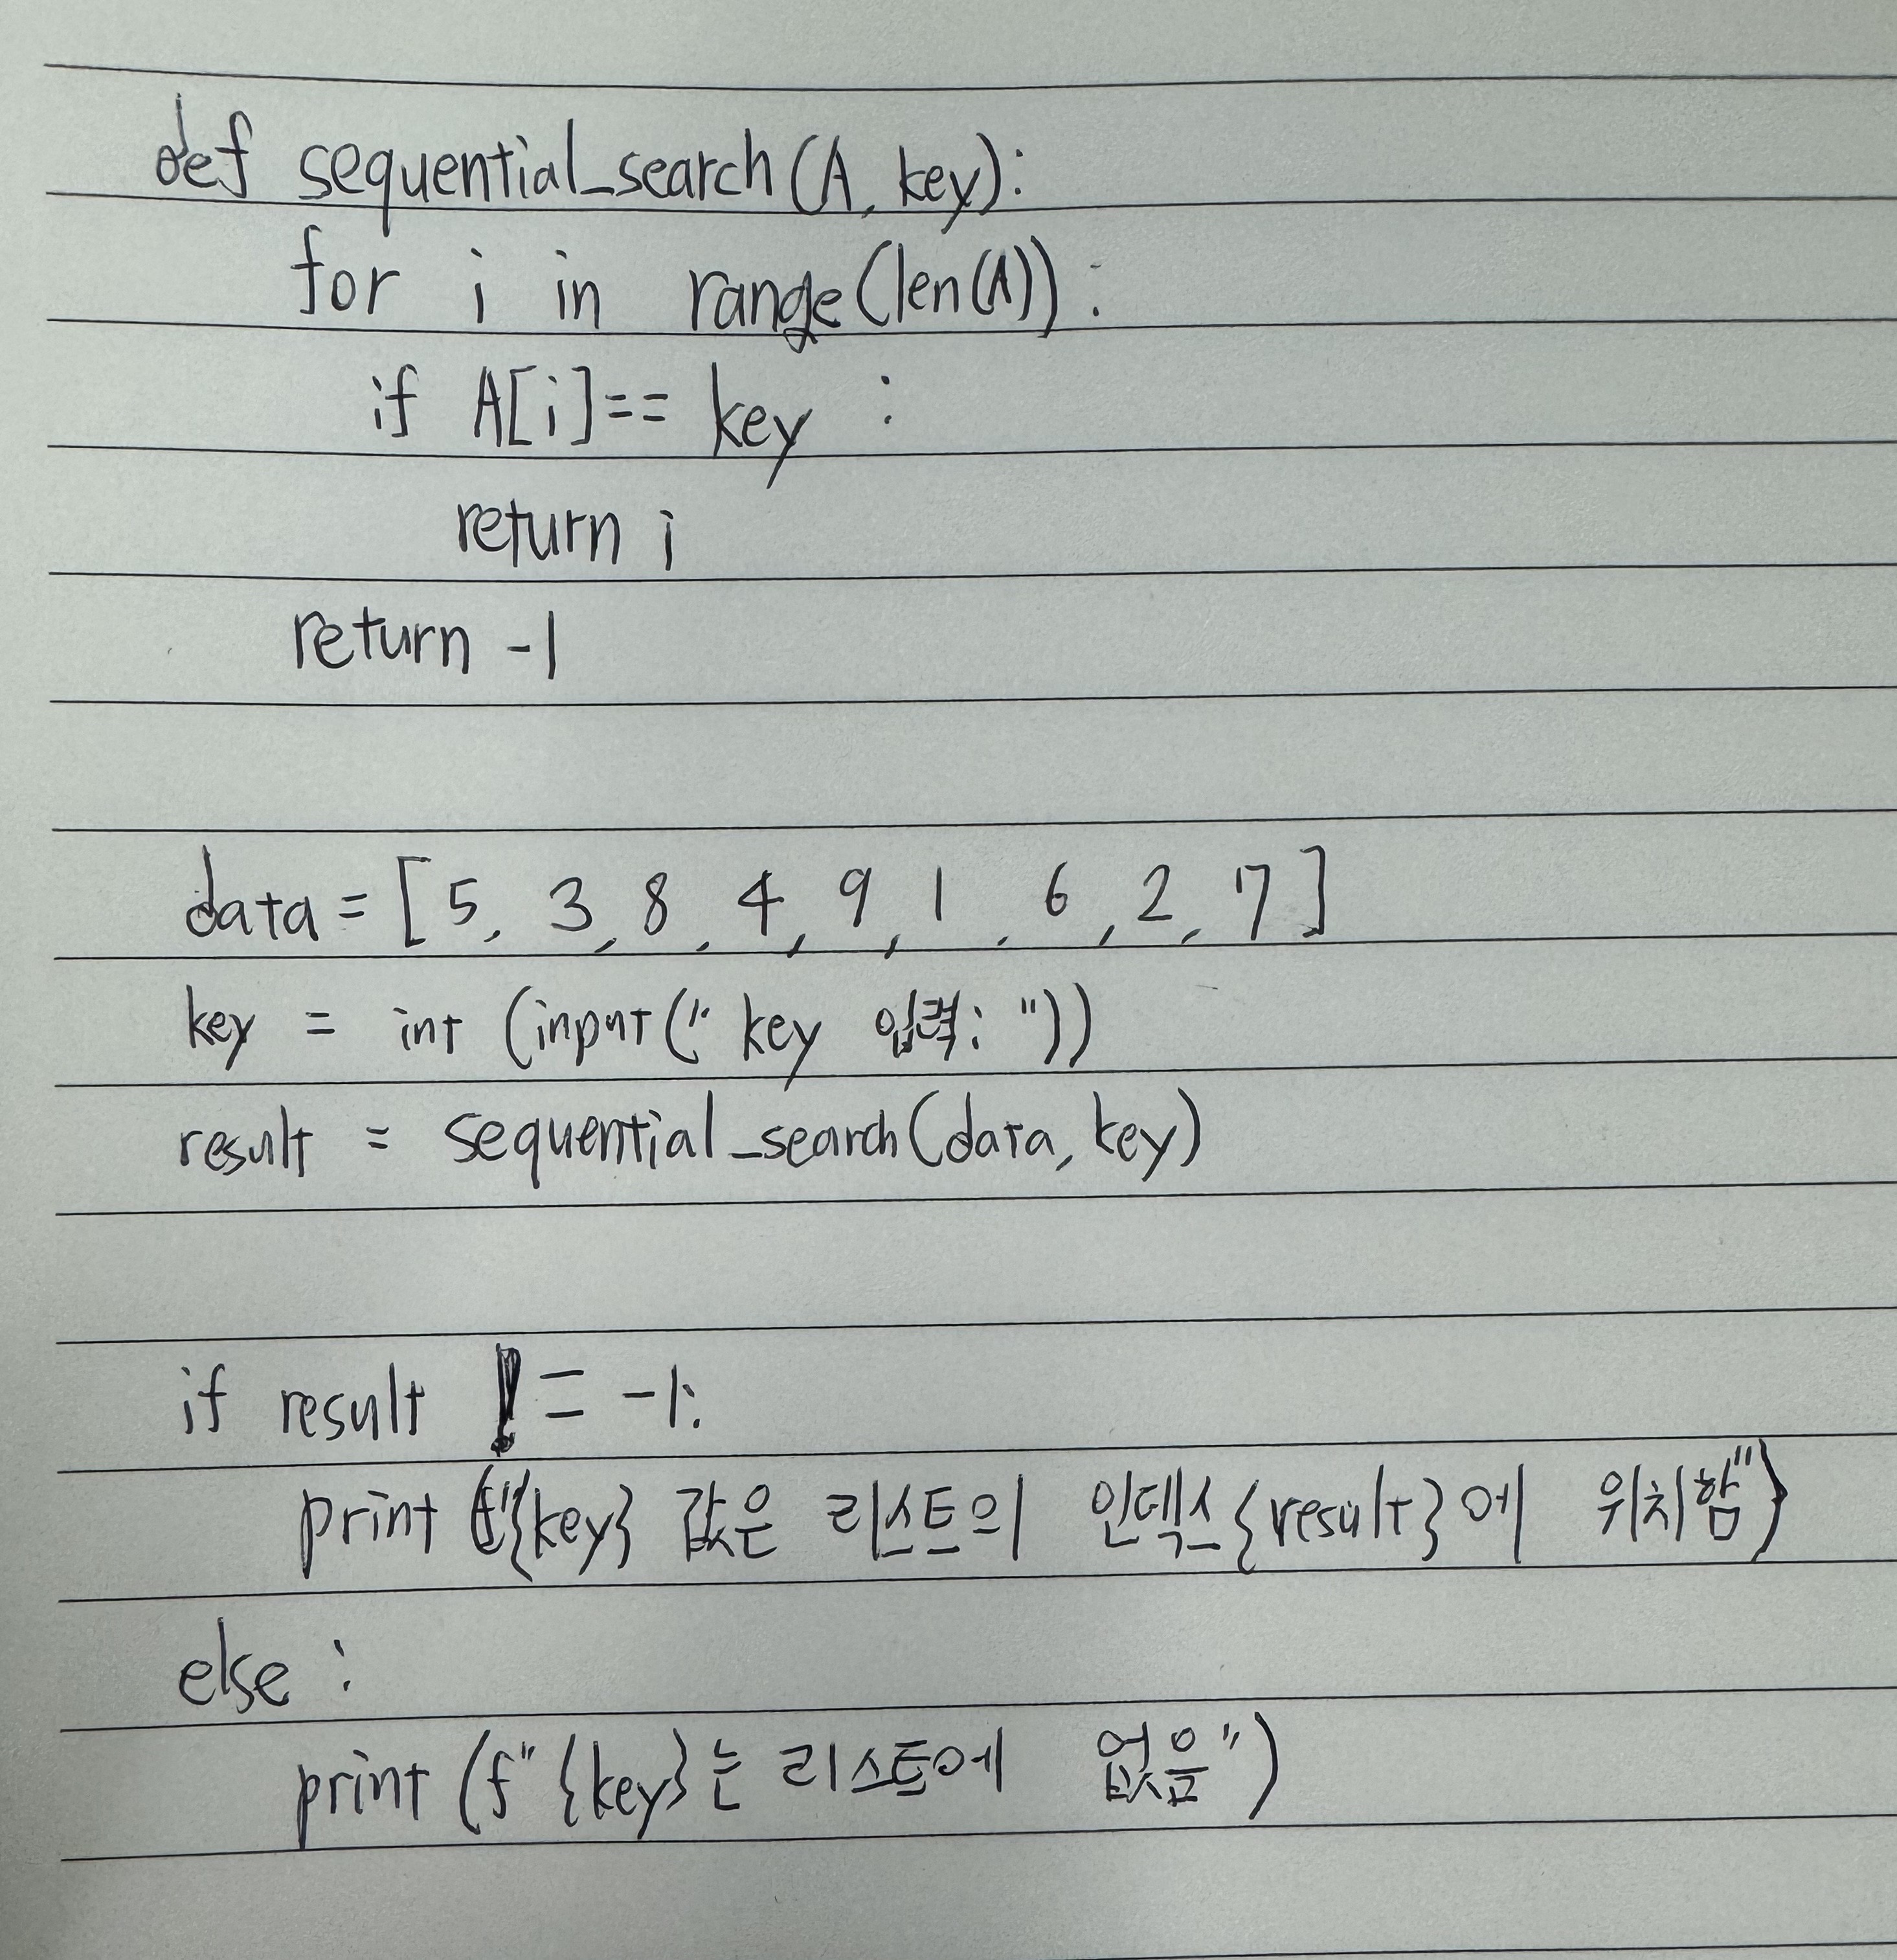 def sequential_search(A, key):
for i in range(len(A)):
if A[i]== key :
return i
return -1
data = [5, 3, 8, 4, 9, 1, 6, 2, 7]
key = int (input(" key 입력: "))
result = sequential_search(data, key)
if result != -1:
print (f"{key} 값은 리스트의 인덱스{result}에 위치함")
else :
print (f"{key}는 리스트에 없음")